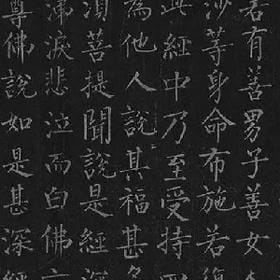 若有善男子善女
沙等身命布施若復
此經中乃至受持
為他人說其福甚多
須菩提聞說是經深
涕淚悲泣而白佛言
尊佛說如是甚深經